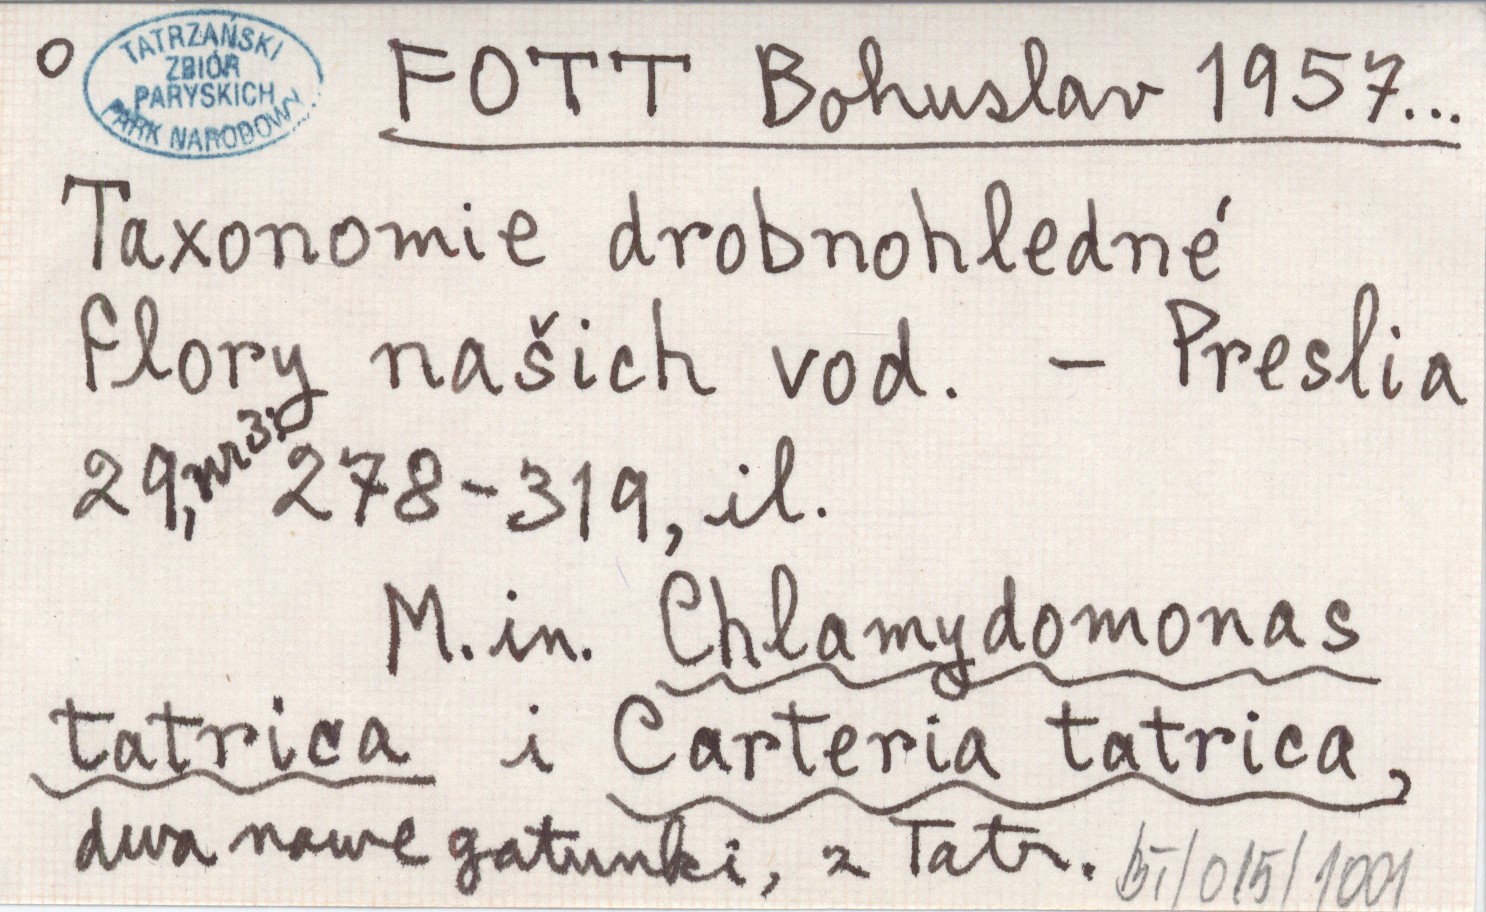 TATRZAŃSKI
ZBIÓR
PARYSKICH
PARK NARODOWY
O FOTT Bohuslav 1957...
Taxonomie drobnohledné
flory našich vod. – Preslia
29, nr 3: 278-319, il.
M.in. Chlamydomonas
tatrica i Carteria tatrica,
dwa nowe gatunki, z Tatr.
/015/1001